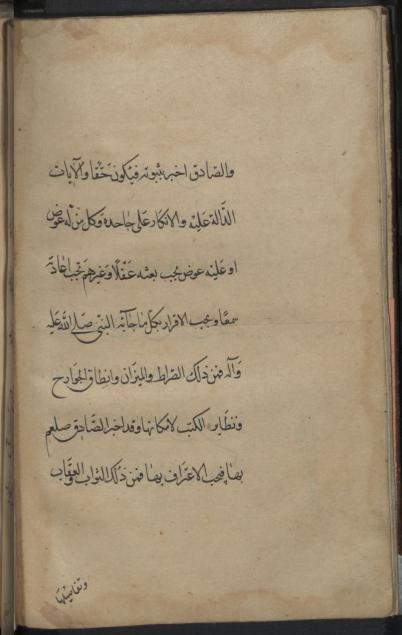 والصادق اخبر بثبوته فيكون حقا والآيات
الدالة عليه والانكار على جاحده وكل من له عوض
او عليه عوض يجب بعثه عقلا وغيرهم تجب اعادته
سمعا ويجب الاقرار بكل ما جآء به النبى صلى الله عليه
وآله فمن ذلك الصراط والميزان وانطاق الجوارح
وتطاير الكتب لامكانها وقد اخبر الصادق صلعم
بها فيجب الاعتراف بها فمن ذلك الثواب والعقاب
وتفاصيلها